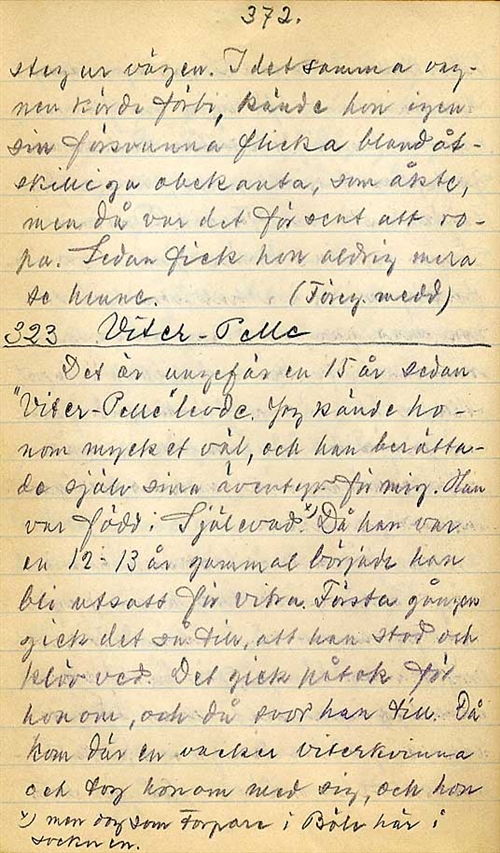 372.
steg ur vägen. I detsamma vag-
nen körde förbi, kände hon igen
sin försvunna flicka bland åt-
skilliga obekanta, som åkte,
men då var det för sent att ro-
pa. Sedan fick hon aldrig mera
se henne. (Föreg. medd)
323 Viter-Pelle
Det är ungefär en 15 år sedan
"Viter-Pelle" levde. Jag kände ho-
nom mycket väl, och han berätta-
de själv sina äventyr för mig. Han
var född i Själevad.x) Då han var
en 12-13 år gammal började han
bli utsatt för vitra. Första gången
gick det så till, att han stod och
klöv ved. Det gick påtok för
honom, och då svor han till. Då
kom där en vacker viterkvinna
och tog honom med sig, och hon
x) men dog som torpare i Böle här i
socknen.